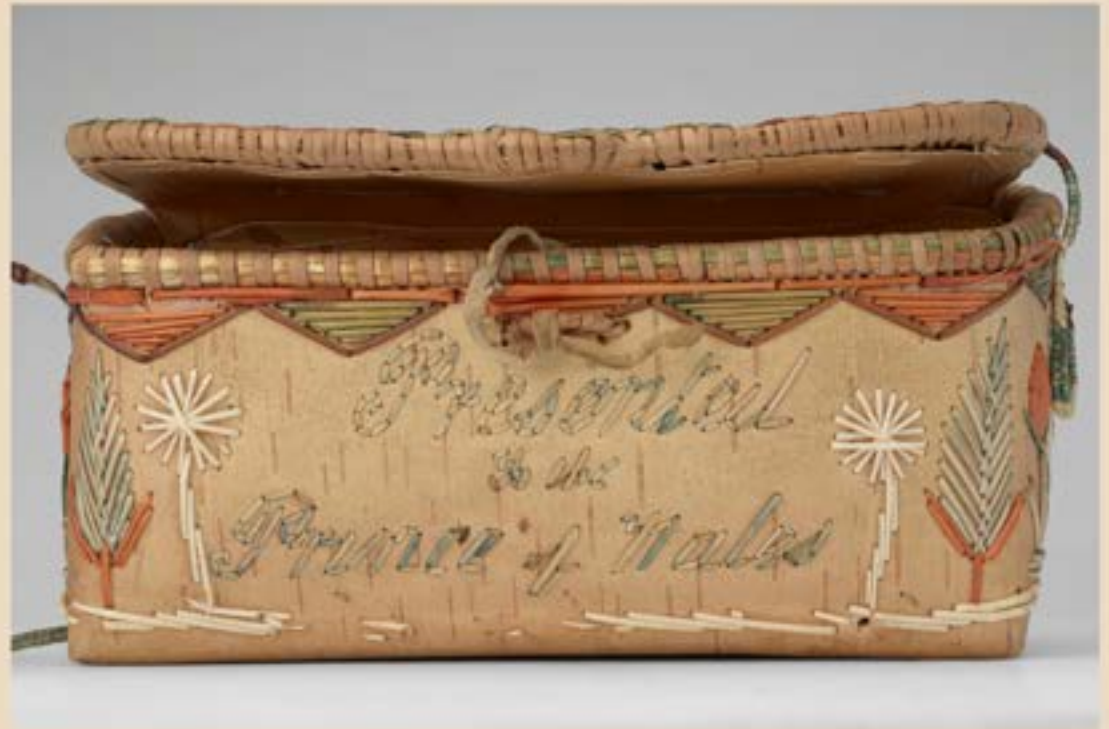 Presented
to the
Prince of Wales